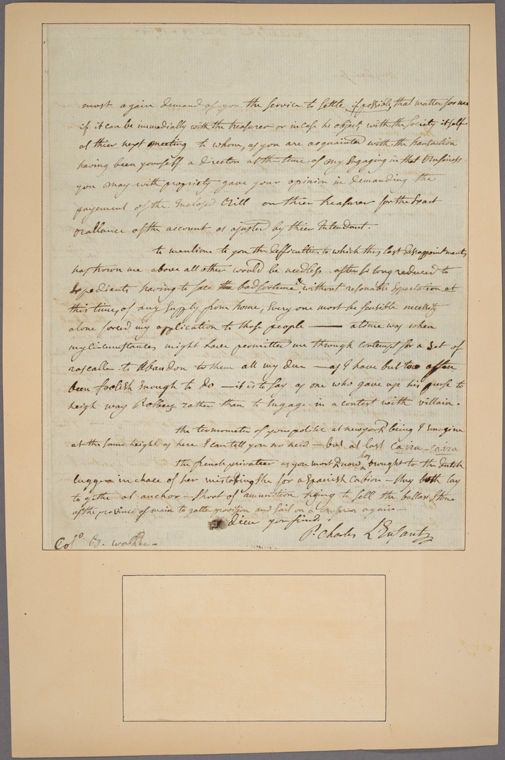 must again demand of you the service to settle if possibly that matter for me
if it can be immedially with the treasorer or in case he object with the Society it self
at thier next meeting to whom, as you are acquainted with the transaction
having been yourself a director at the time of my Engaging in that Business
you may with propriety gave your opinion in demanding the
payement of the Enclosed Bill on thier treasurer for the Exact
ballance of the account as ajusted by thier Intendant.
to mentione to you the difficultes to which the last disapointments
has trown me above all other would be needless. after so long reduced to
Expedients having to face the bad fortune, without resonable Expectation at
this time, of any supply from home; Every one most be sensible necessity
alone forced my application to those people — at one way when
my Circumstances might have permitted me through contempt for a set of
rascalles to Abandon to them all my due — as I have but too often
been foolish Enough to do — is to say as one who gave up his purse to
heigh way Robers rather than to Engage in a contest with villain.
the termometer of your politic at newyork being I imagine
at the same height as here I can tell you no new — but at last Caira - caira
the french privateer as you most know, brought to the Dutch
lugger in chace of her mistaking the for a Spanish — they both lay
to gether at anchor — short of amunition trying to sell the ballast Stone
of the province of main to gette provision and sail on a again —
Dieu you find:
P. Charles L'Enfant
Colo. B. walker —